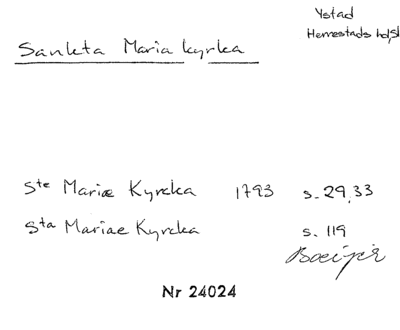 Ystad
Herrestads hd, Sk
Sankta Maria kyrka
Ste Mariæ Kyrcka 1793 s. 29, 33
Sta Mariae Kyrcka s. 119
Nr 24024